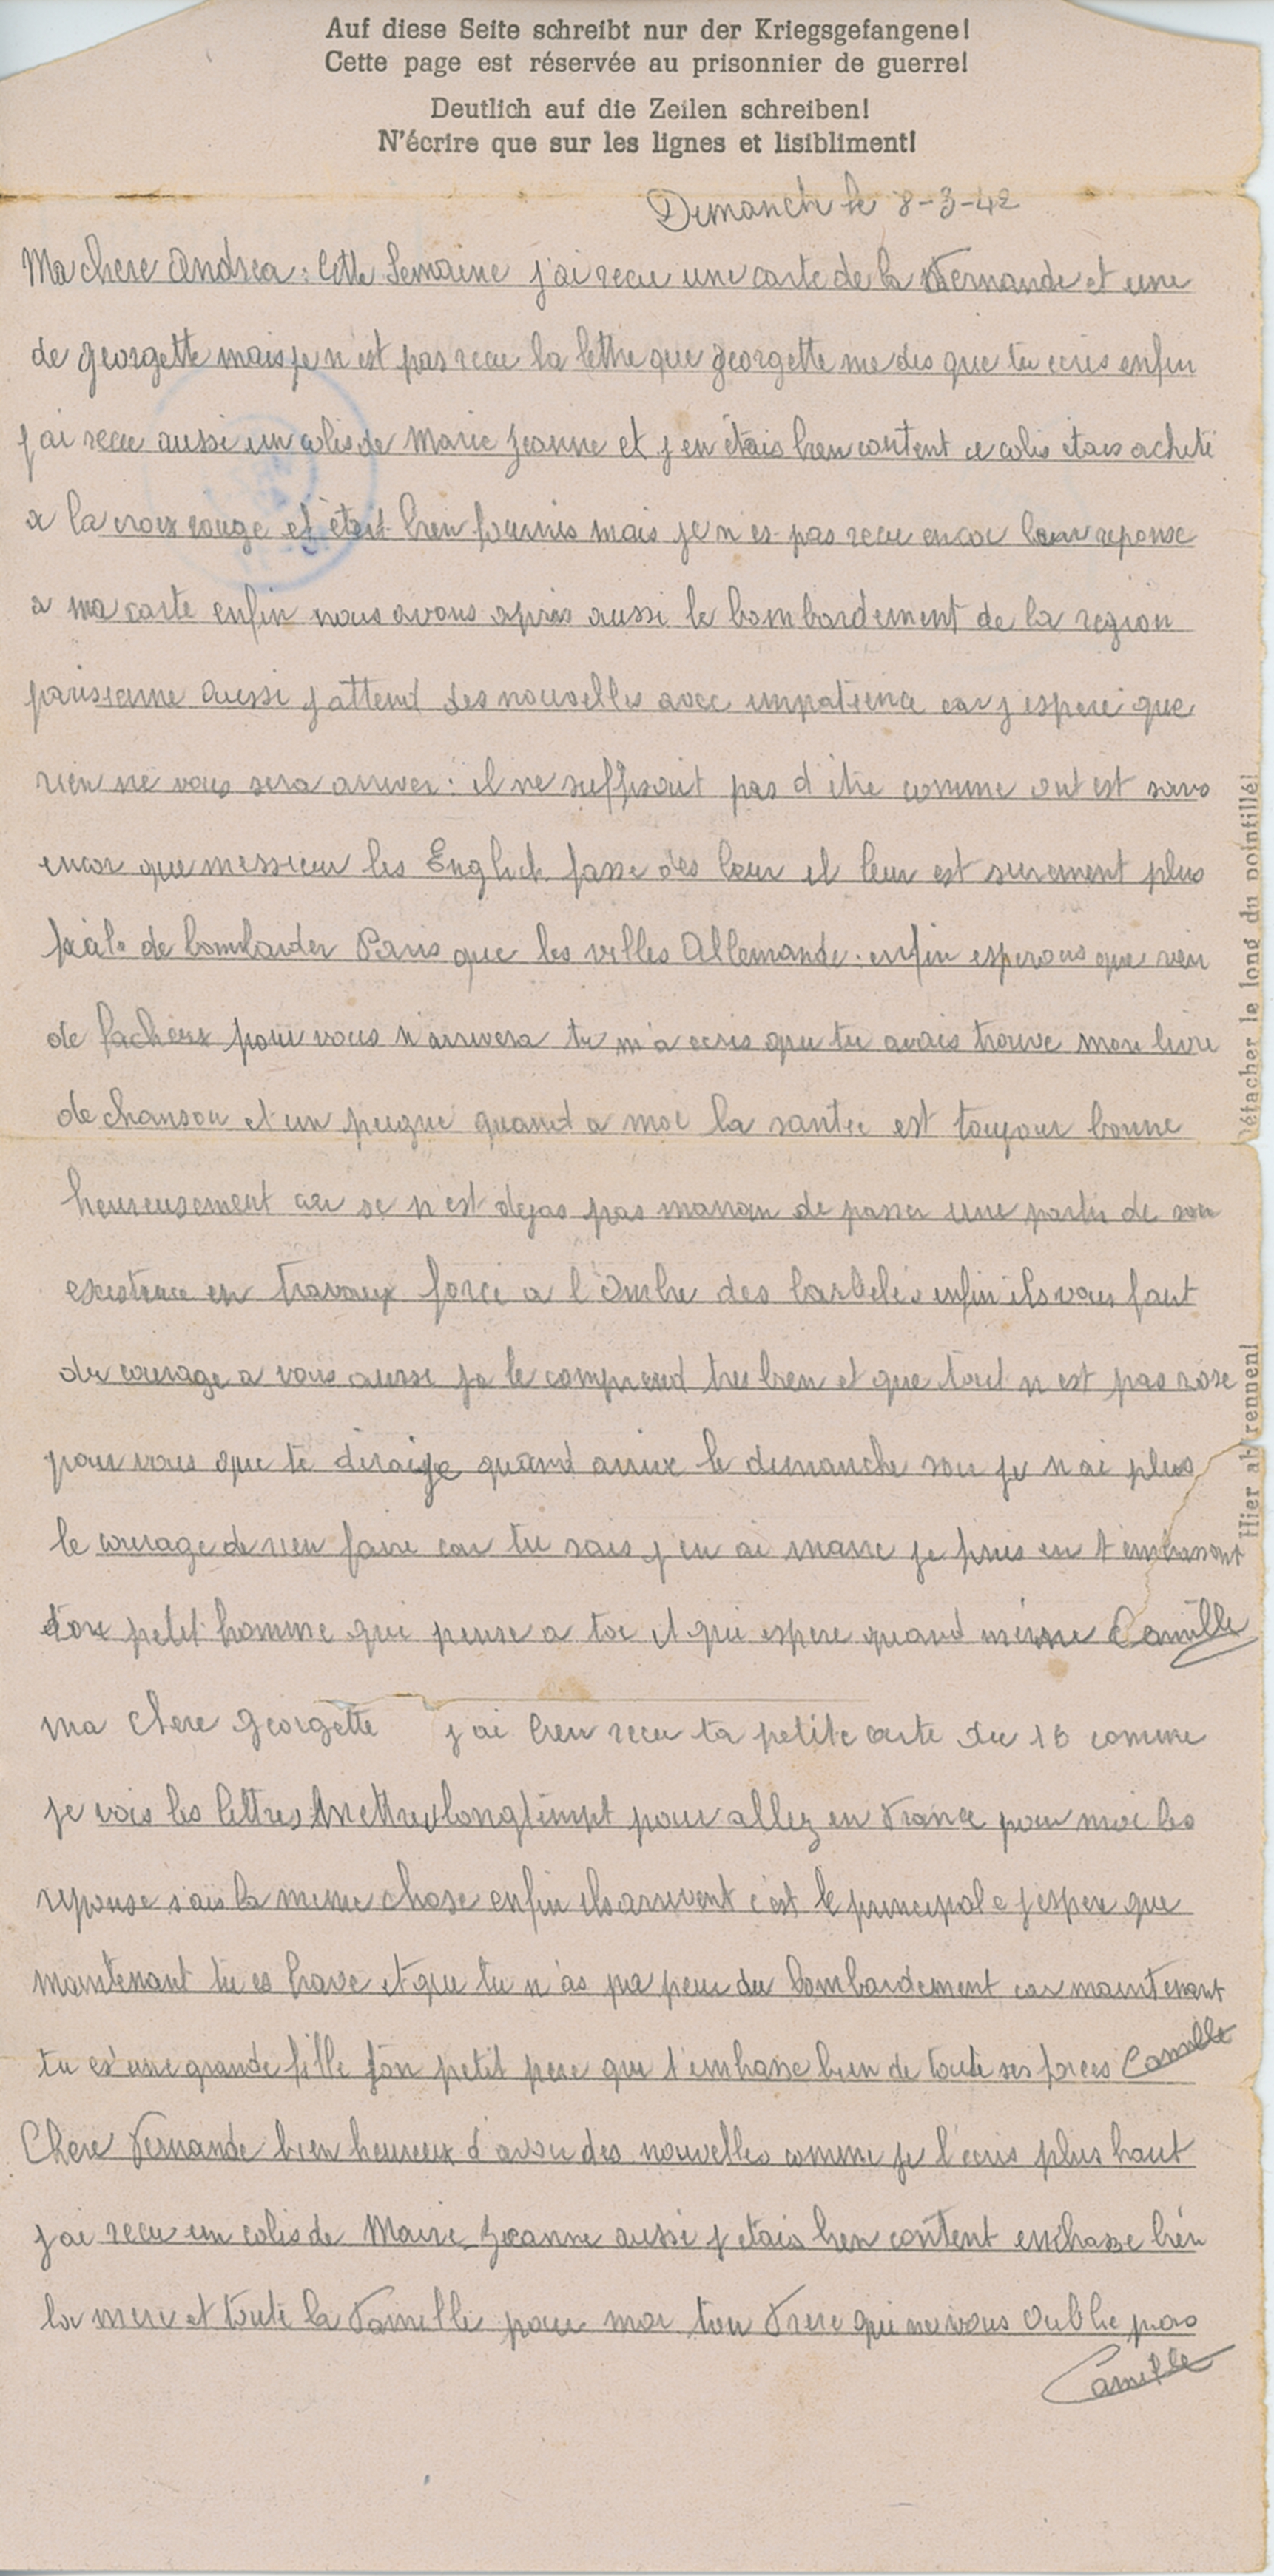 Auf diese Seite schreibt nur der Kriegsgefangene!
Cette page est réservée au prisonnier de guerre!
Deutlich auf die Zeilen schreiben!
N'écrire que sur les lignes et lisibliment!
Dimanche le 8-3-42
Ma chere Andrea : Cette Semaine j'ai recu une carte de la Fernande et une
de georgette mais je n est pas recue la lettre que georgette me dis que tu ecris enfin
j ai recue aussi un colis de Marie Jeanne et j en étais bien content ce colis etais acheté
a la croix rouge et était bien fournis mais je n es pas recu encor leur reponse
a ma carte enfin nous avons apris aussi le bombardement de la region
parisienne aussi j attend des nouvelles avec impatience car j espere que
rien ne vous sera arriver : il ne suffisait pas d'etre comme ont est sans
encor que messieur les English fasse des leur il leur est surement plus
facile de bombarder Paris que les villes Allemande. enfin esperons que rien
de facheux pour vous n'arrivera tu m'a ecris que tu avais trouve mon livre
de chanson et un peigne quand a moi la santée est toujour bonne
heureusement car se n'est dejas pas marran de passer une partie de son
existence en travaux force a l'Ombre des barbelés enfin ils vous faut
du courage a vous aussi je le comprend tres bien et que tout n est pas rose
pour vous que te diraije quand arrive le dimanche soir je n ai plus
le courage de rien faire car tu sais j'en ai marre je finis en t embrassant
ton petit homme qui pense a toi et qui espere quand même Camille
ma chere georgette j ai bien recu ta petite carte du 16 comme
je vois les lettres mettres longtempt pour allez en France pour moi les
reponse s'ais la meme chose enfin ils arrivent c'est le principale j'espere que
maintenant tu es brave et que tu n'as pas peur du bombardement car maintenant
tu es une grande fille ton petit pere qui t'embrasse bien de toute ses forces Camille
Chere Fernande bien heureux d'avoir des nouvelles comme je l'ecris plus haut
j ai recu un colis de Marie-Jeanne aussi j etais bien content embrasse bien
la mere et toute la Famille pour moi ton Frere qui ne vous Oublie pas
Camille
Détacher le long du pointillé!
Hier abtrennen!